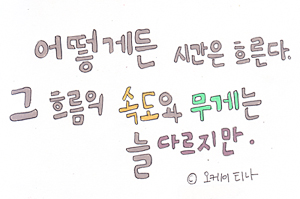 어떻게든 시간은 흐른다.
그 흐름의 속도와 무게는
늘 다르지만.
© 오케이 티나